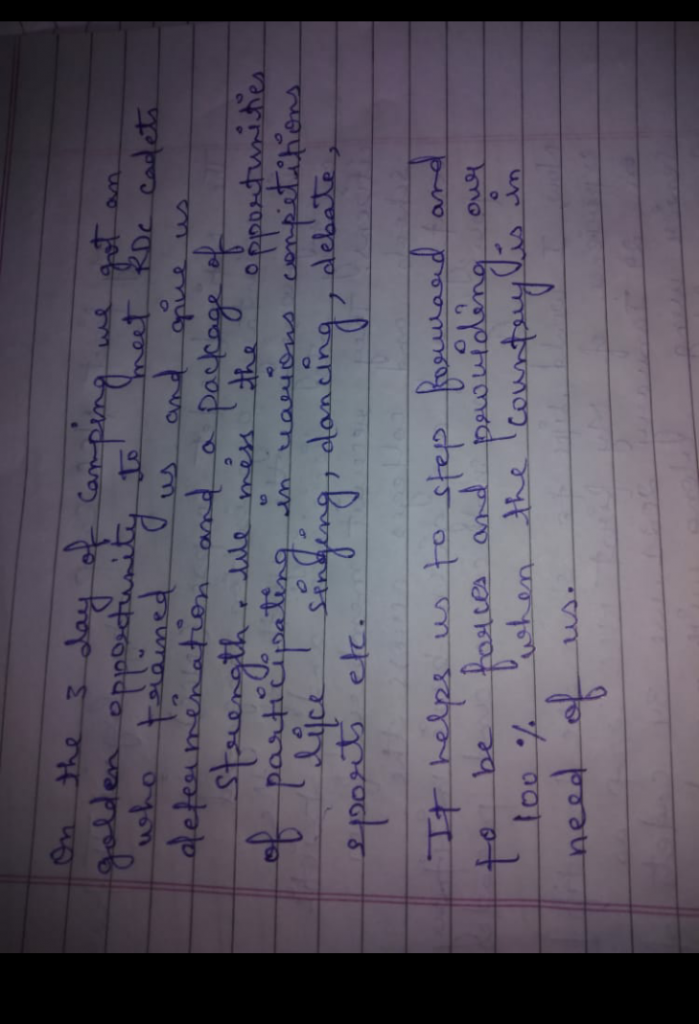 On the 3 day of camping we got an
golden opportunity to meet RDC cadets
who trained us and give us
determination and a package of
strength. We miss the opportunities
of participating in various competitions
like singing, dancing, debate,
sports etc.
It helps us to step forward and
to be forces and providing our
100% when the country is in
need of us.